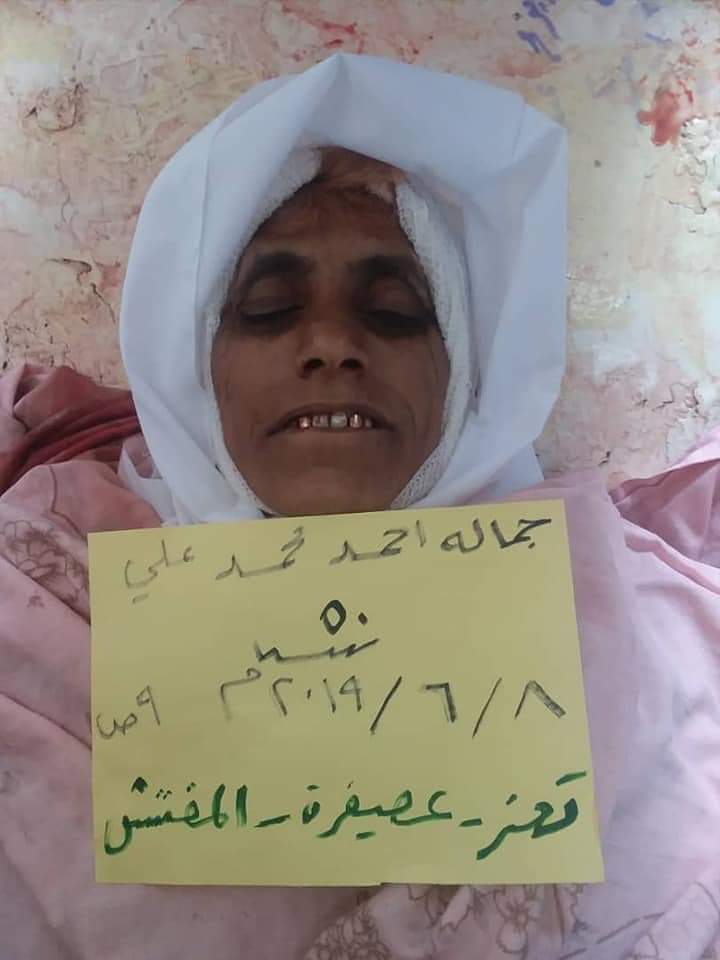 جماله احمد محمد علي
٥٠ سنه
٨/٦/٢٠١٩م ٩ص
تعز - عصيفرة - المفتش